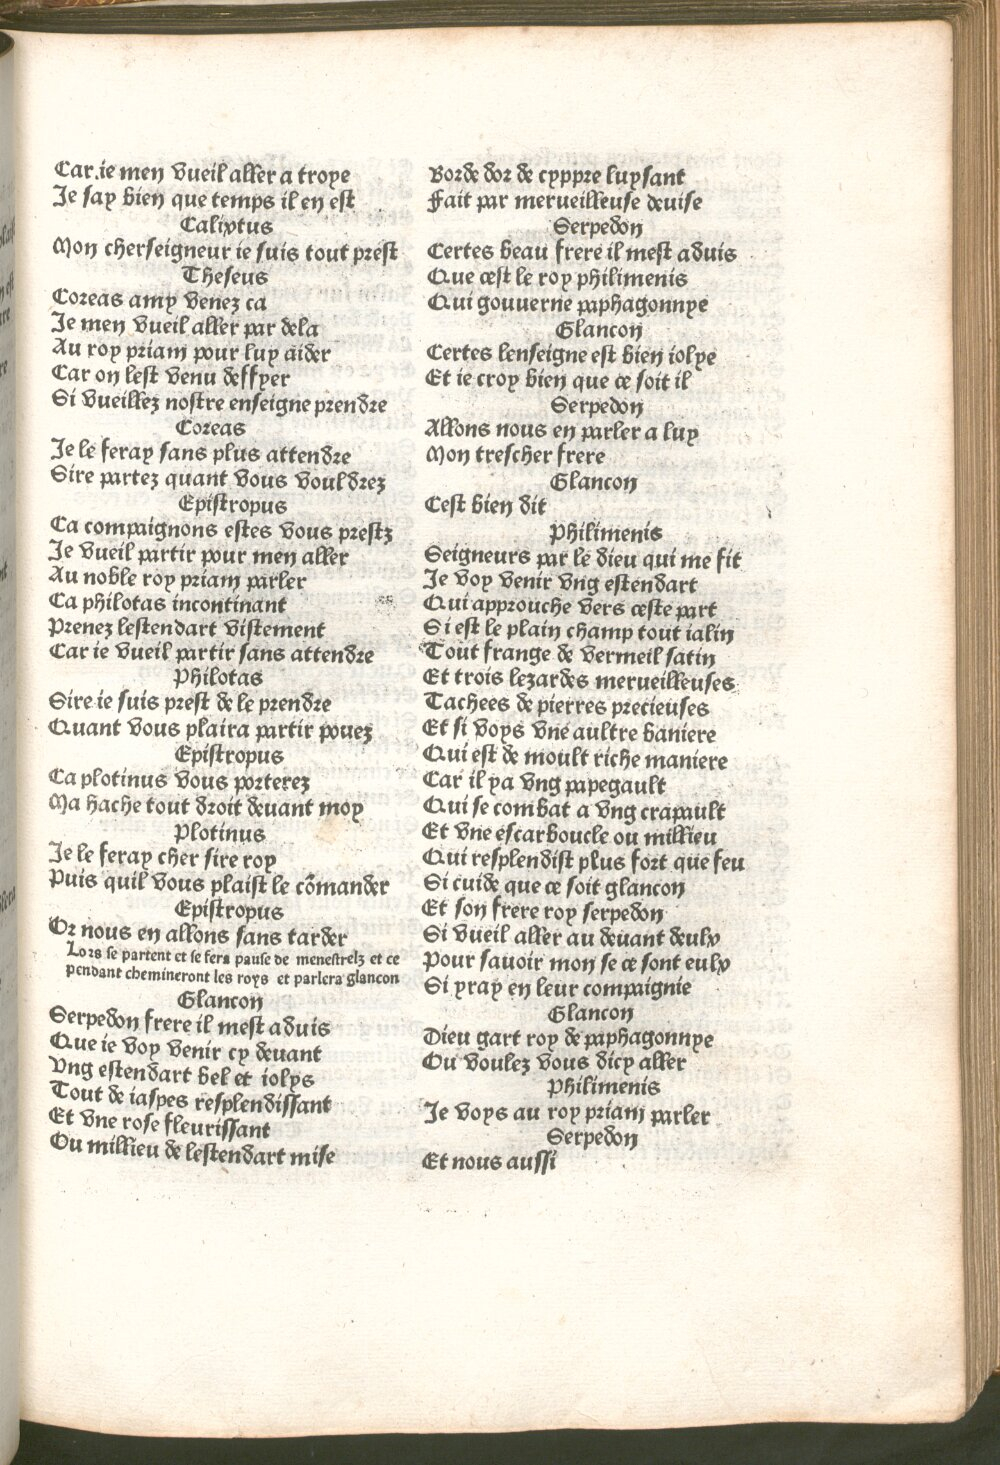 Car.ie men vueil aller a troye
Je say bien que temps il en est
Calixtus
Mon cherseigneur ie suis tout prest
Theseus
Coreas amy venez ca
Je men vueil aller par dela
Au roy priam pour luy aider
Car on lest venu deffyer
Si vueillez nostre enseigne prendre
Coreas
Je le feray sans plus attendre
Sire partez quant vous vouldrez
Epistropus
Ca compaignons estes vous prestz
Je vueil partir pour men aller
Au noble roy priam parler
Ca philotas incontinant
Prenez lestendart vistement
Car ie vueil partir sans attendre
Philotas
Sire ie suis prest de le prendre
Quant vous plaira partir pouez
Epistropus
Ca plotinus vous porterez
Ma hache tout droit devant moy
Plotinus
Je le feray cher sire roy
Puis quil vous plaist le cõmander
Epistropus
Or nous en allons sans tarder
Lors se partent et se fera pause de menestrelz et ce
pendant chemineront les roys et parlera glancon
Glancon
Serpedon frere il mest aduis
Que ie voy venir cy devant
Vng estendart bel et iolys
Tout de iaspes resplendissant
Et vne rose fleurissant
Ou millieu de lestendart mise
Borde dor de cyppre luysant
Fait par merueilleuse deuise
Serpedon
Certes beau frere il mest aduis
Que cest le roy philimenis
Qui gouuerne paphagonnye
Glancon
Certes lenseigne est bien iolye
Et ie croy bien que ce soit il
Serpedon
Allons nous en parler a luy
Mon trescher frere
Glancon
Cest bien dit
Philimenis
Seigneurs par le dieu qui me fit
Je voy venir vng estendart
Qui approuche vers ceste part
Si est le plain champ tout ialin
Tout frange de vermeil satin
Et trois lezardes merueilleuses
Tachees de pierres precieuses
Et si voys vne aultre baniere
Qui est de moult riche maniere
Car il ya vng papegault
Qui se combat a vng crapault
Et vne escarboucle ou millieu
Qui resplendist plus fort que feu
Si cuide que ce soit glancon
Et son frere roy serpedon
Si vueil aller au deuant deulx
Pour sauoir mon se ce sont eulx
Si yray en leur compaignie
Glancon
Dieu gart roy de paphagonnye
Ou voulez vous dicy aller
Philimenis
Je voys au roy priam parler
Serpedon
Et nous aussi